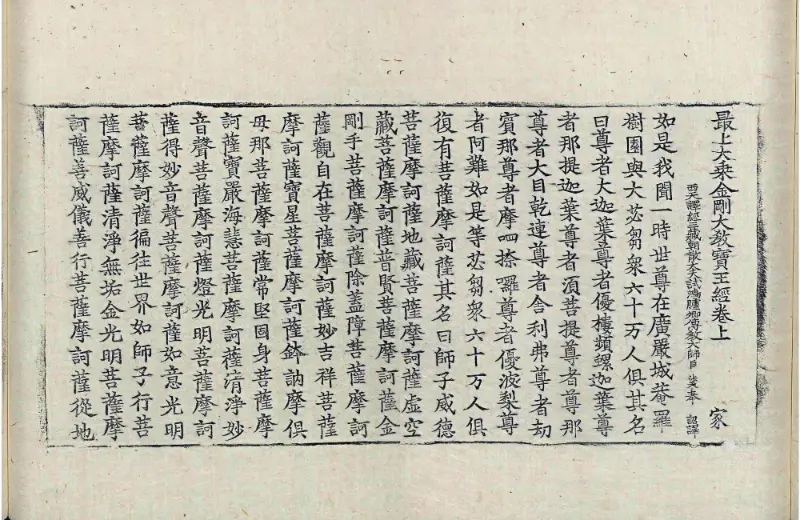 最上大乘金剛大教寶王經卷上 家
西天譯經三藏朝散大夫試鴻臚卿傳教大師臣 法天奉 詔譯
如是我聞一時世尊在廣嚴城菴羅
樹園與大苾芻衆六十万人俱其名
曰尊者大迦葉尊者優樓頻螺迦葉尊
者那提迦葉尊者須菩提尊者尊那
尊者大目乾連尊者舍利弗尊者劫
賓那尊者摩呬捺囉尊者優波梨尊
者阿難如是等苾芻衆六十万人俱
復有菩薩摩訶薩其名曰師子威德
菩薩摩訶薩地藏菩薩摩訶薩虛空
藏菩薩摩訶薩普賢菩薩摩訶薩金
剛手菩薩摩訶薩除蓋障菩薩摩訶
薩觀自在菩薩摩訶薩妙吉祥菩薩
摩訶薩寶星菩薩摩訶薩鉢訥摩俱
毋那菩薩摩訶薩常堅固身菩薩摩
訶薩寶嚴海慧菩薩摩訶薩清淨妙
音聲菩薩摩訶薩燈光明菩薩摩訶
薩得妙音聲菩薩摩訶薩如意光明
菩薩摩訶薩徧往世界如師子行菩
薩摩訶薩清淨無垢金光明菩薩摩
訶薩善威儀善行菩薩摩訶薩從地